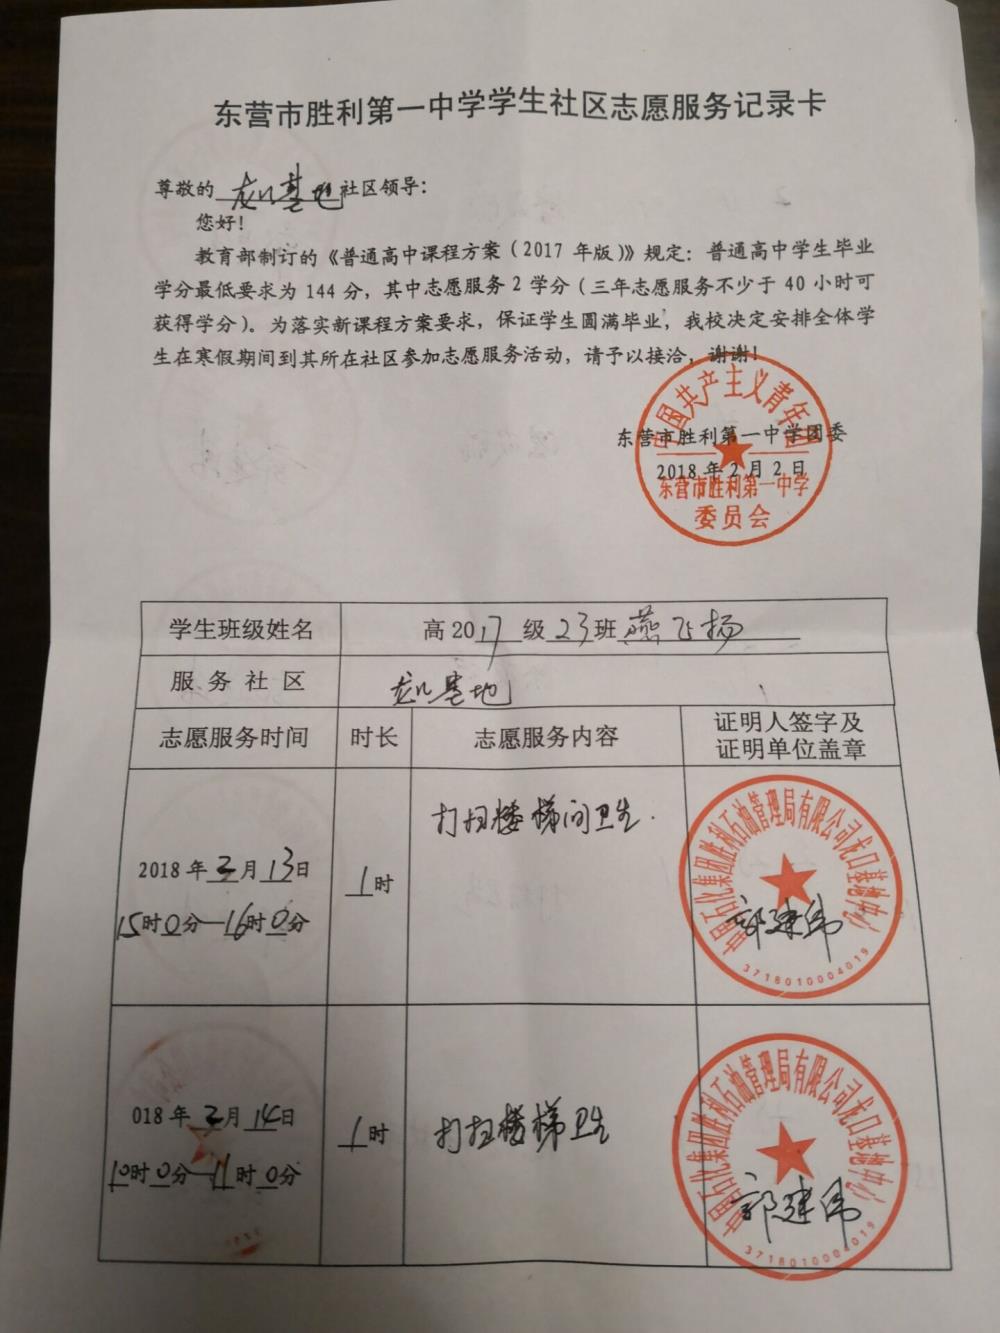 东营市胜利第一中学学生社区志愿服务记录卡
尊敬的 龙口基地 社区领导：
您好！
教育部制订的《普通高中课程方案（2017 年版）》规定：普通高中学生毕业
学分最低要求为 144 分，其中志愿服务 2 学分（三年志愿服务不少于 40 小时可
获得学分）。为落实新课程方案要求，保证学生圆满毕业，我校决定安排全体学
生在寒假期间到其所在社区参加志愿服务活动，请予以接洽，谢谢！
中国共产主义青年团
东营市胜利第一中学团委
2018 年 2 月 2 日
东营市胜利第一中学
委员会
学生班级姓名 高 2017 级 23 班 燕飞扬
服务社区 龙口基地
志愿服务时间 时长 志愿服务内容 证明人签字及
证明单位盖章
打扫楼梯间卫生.
2018 年 2 月 13 日 1 时
15时0分—16时0分
中国石化集团胜利石油管理局有限公司龙口基地中心
郭建伟
3718010004019
018 年 2 月 14 日 1 时 打扫楼梯卫生
10时0分—11时0分
中国石化集团胜利石油管理局有限公司龙口基地中心
郭建伟
3718010004019